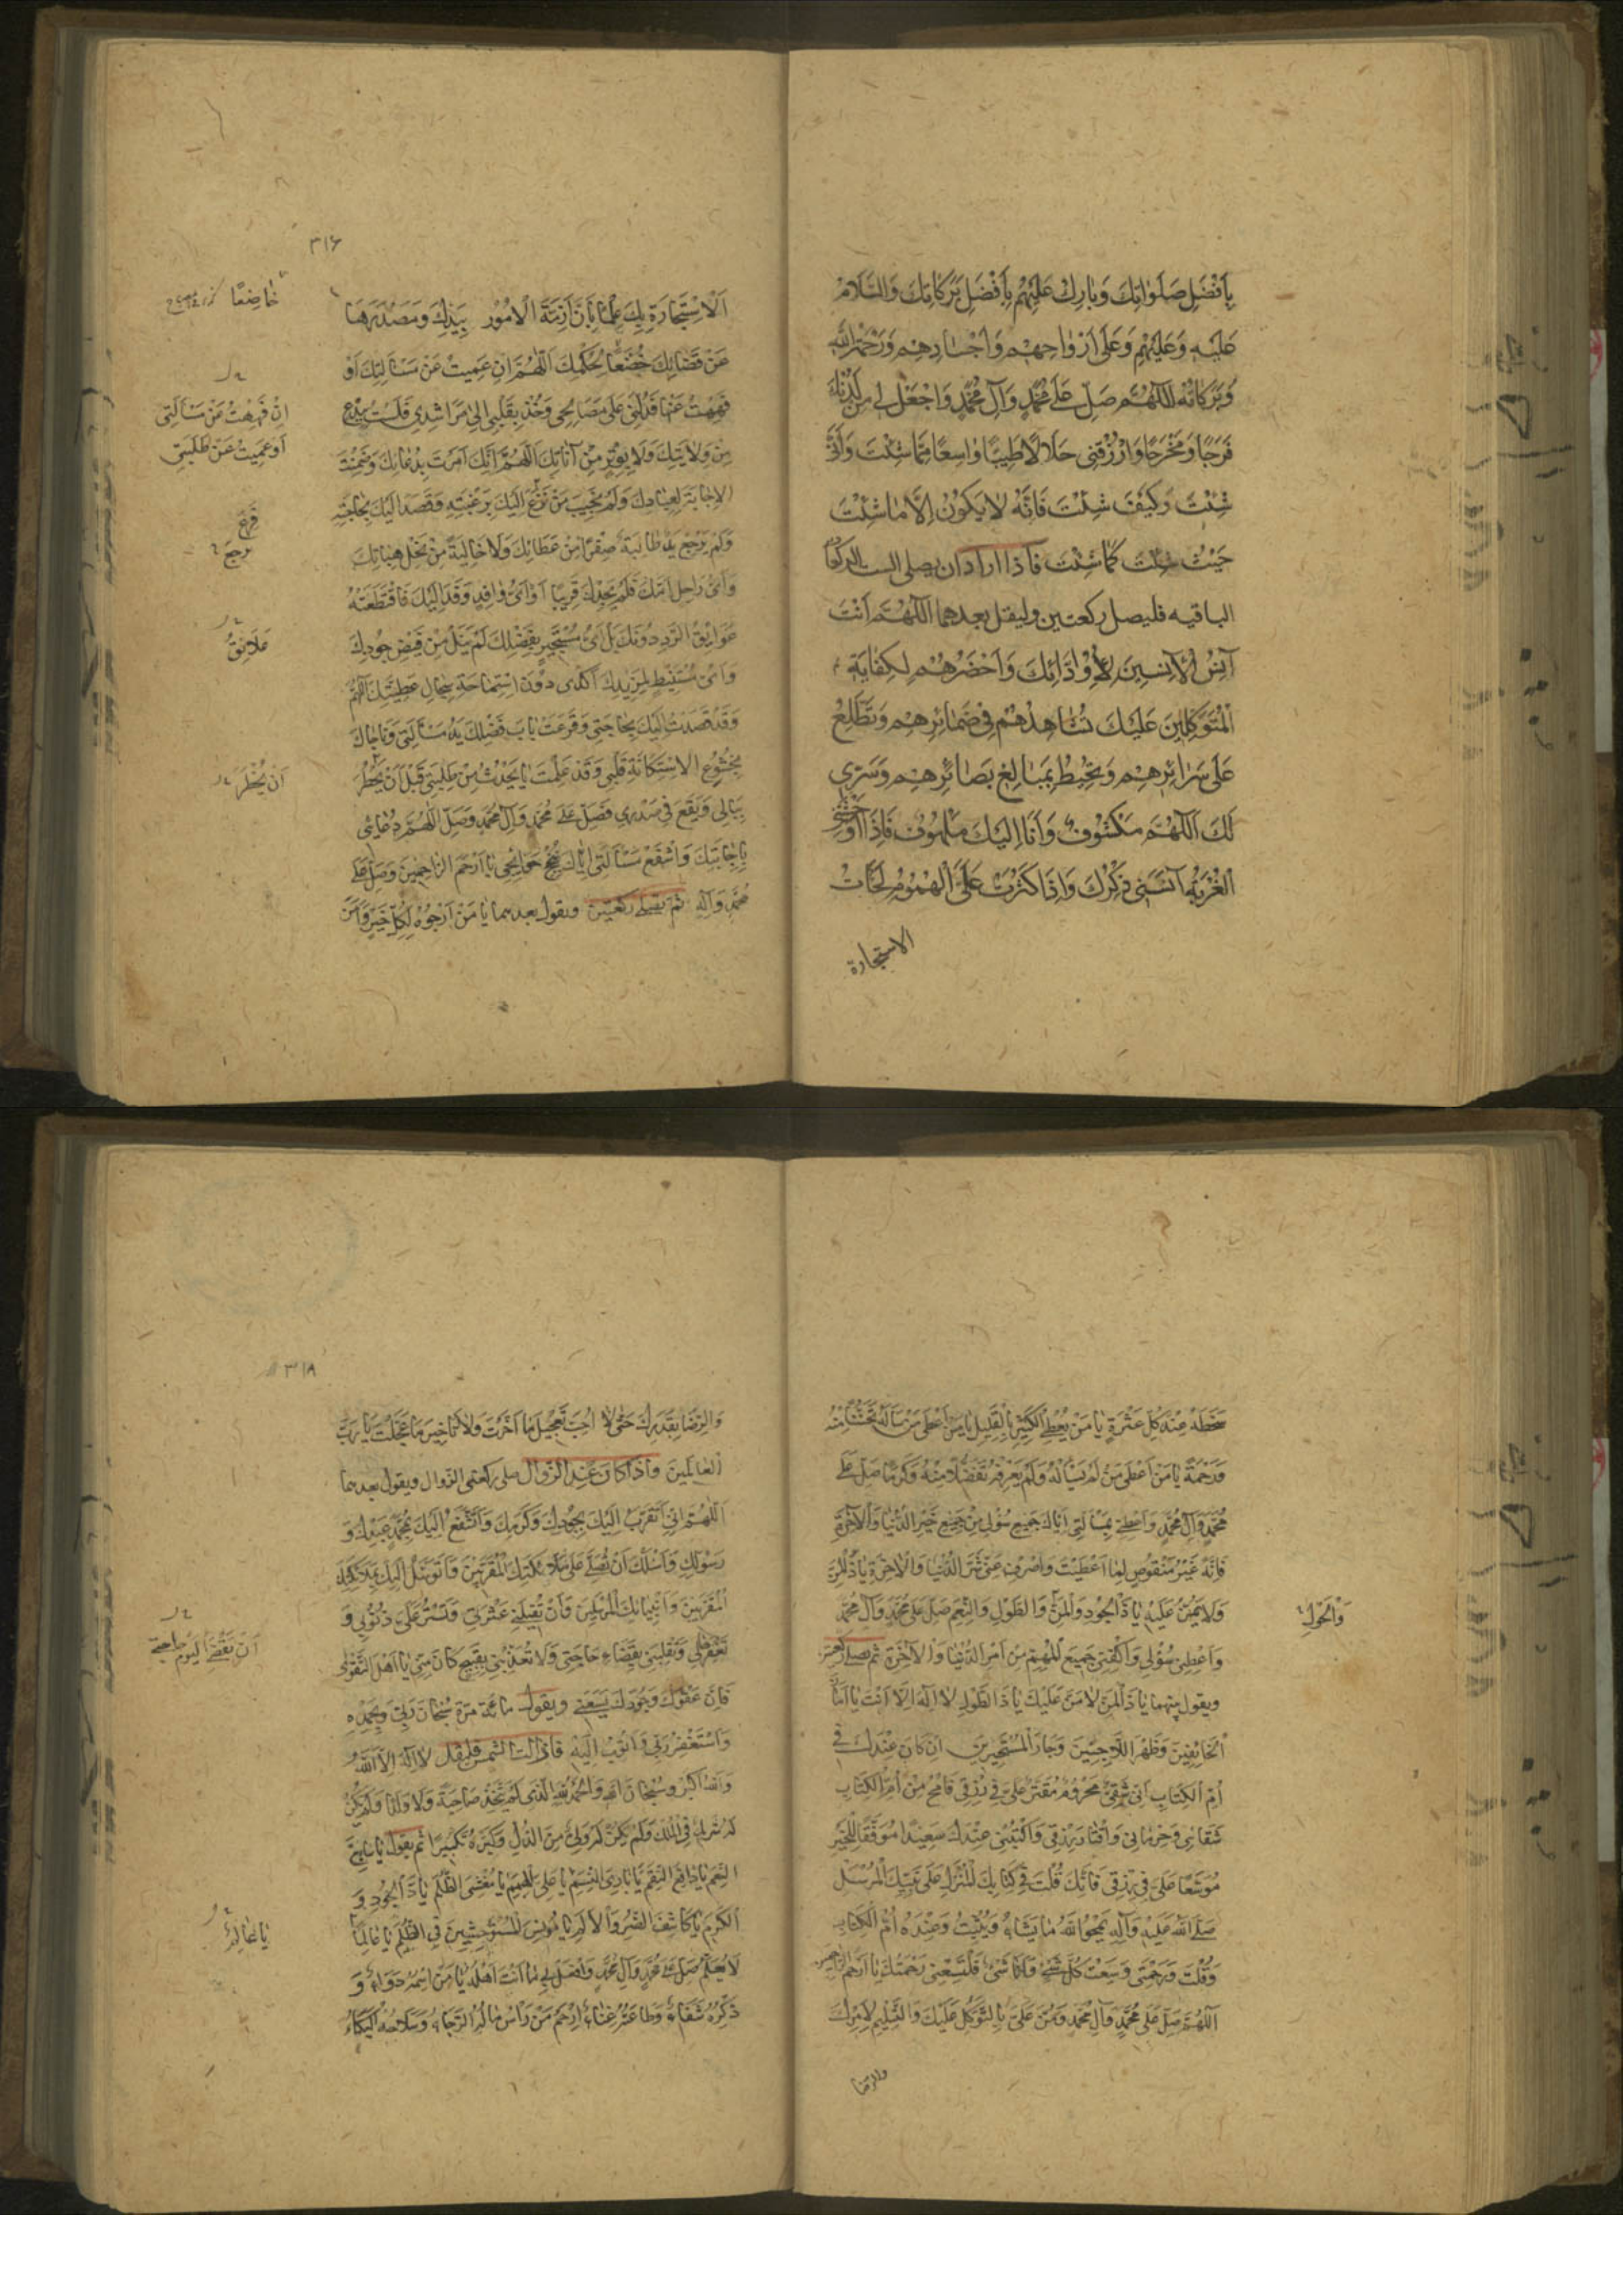 بِأَفْضَلِ صَلَوَاتِكَ وَبَارِكْ عَلَيْهِمْ بِأَفْضَلِ بَرَكَاتِكَ وَالسَّلَامُ
عَلَيْهِ وَعَلَيْهِمْ وَعَلَى أَرْوَاحِهِمْ وَأَجْسَادِهِمْ وَرَحْمَةُ اللهِ
وَبَرَكَاتُهُ اَللّهُمَّ صَلِّ عَلَى مُحَمَّدٍ وَآلِ مُحَمَّدٍ وَاجْعَلْ لِي مِنْ
فَرَجًا وَمَخْرَجًا وَارْزُقْنِي حَلَالًا طَيِّبًا وَاسِعًا مِمَّا شِئْتَ وَأَنَّى
شِئْتَ وَكَيْفَ شِئْتَ فَإِنَّهُ لَا يَكُونُ إِلَّا مَا شِئْتَ
حَيْثُ شِئْتَ كَمَا شِئْتَ فاذا اراد ان يصلى الست الركعات
الباقيه فليصل ركعتين وليقل بعدهما اَللّهُمَّ أَنْتَ
آنَسُ الْآنِسِينَ لِأَوِدَّائِكَ وَأَحْضَرُهُمْ لِكِفَايَةِ
الْمُتَوَكِّلِينَ عَلَيْكَ تُشَاهِدُهُمْ فِي ضَمَائِرِهِمْ وَتَطَّلِعُ
عَلَى سَرَائِرِهِمْ وَتُحِيطُ بِمَبَالِغِ بَصَائِرِهِمْ وَسِرِّي
لَكَ اَللّهُمَّ مَكْشُوفٌ وَأَنَا إِلَيْكَ مَلْهُوفٌ فَإِذَا أَوْحَشَتْنِي
الْغُرْبَةُ آنَسَنِي ذِكْرُكَ وَإِذَا كَثُرَتْ عَلَيَّ الْهُمُومُ لَجَأْتُ
الاستجارة
٣١٦
اَلْاِسْتِجَارَةِ بِكَ عِلْمًا بِأَنَّ أَزِمَّةَ الْأُمُورِ بِيَدِكَ وَمَصْدَرَهَا
عَنْ قَضَائِكَ خُضَّعًا لِحُكْمِكَ اَللّهُمَّ إِنْ عَمِيتُ عَنْ مَسْأَلَتِكَ أَوْ
فَهِهْتُ عَنْهَا فَدُلَّنِي عَلَى مَصَالِحِي وَخُذْ بِقَلْبِي إِلَى مَرَاشِدِي فَلَسْتُ بِبِدْعٍ
مِنْ وِلَايَتِكَ وَلَا بِوَتْرٍ مِنْ أَنَاتِكَ اَللّهُمَّ إِنَّكَ أَمَرْتَ بِدُعَائِكَ وَضَمِنْتَ
الْإِجَابَةَ لِعِبَادِكَ وَلَمْ يَخِبْ مَنْ فَزِعَ إِلَيْكَ بِرَغْبَتِهِ وَقَصَدَ إِلَيْكَ بِحَاجَتِهِ
وَلَمْ يَرْجِعْ يَدٌ طَالِبَةٌ صِفْرًا مِنْ عَطَائِكَ وَلَا خَالِيَةً مِنْ نِحَلِ هِبَاتِكَ
وَأَيُّ رَاحِلٍ أَمَّكَ فَلَمْ يَجِدْكَ قَرِيبًا أَوْ أَيُّ وَافِدٍ وَفَدَ إِلَيْكَ فَاقْتَطَعَتْهُ
عَوَائِقُ الرَّدِّ دُونَكَ بَلْ أَيُّ مُسْتَجِيرٍ بِفَضْلِكَ لَمْ يَنَلْ مِنْ فَيْضِ جُودِكَ
وَأَيُّ مُسْتَنْبِطٍ لِمَزِيدِكَ أَكْدَى دُونَ اسْتِمَاحَةِ سِجَالِ عَطِيَّتِكَ اَللّهُمَّ
وَقَدْ قَصَدْتُ إِلَيْكَ بِحَاجَتِي وَقَرَعَتْ بَابَ فَضْلِكَ يَدُ مَسْأَلَتِي وَنَاجَاكَ
بِخُشُوعِ الِاسْتِكَانَةِ قَلْبِي وَقَدْ عَلِمْتَ مَا يَحْدُثُ مِنْ طَلِبَتِي قَبْلَ أَنْ يَخْطُرَ
بِبَالِي وَيَقَعَ فِي صَدْرِي فَصَلِّ عَلَى مُحَمَّدٍ وَآلِ مُحَمَّدٍ وَصِلِ اللّهُمَّ دُعَائِي
بِإِجَابَتِكَ وَاشْفَعْ مَسْأَلَتِي إِيَّاكَ بِنُجْحِ حَوَائِجِي يَا أَرْحَمَ الرَّاحِمِينَ وَصَلِّ عَلَى
مُحَمَّدٍ وَآلِهِ ثم يصلى ركعتين ويقول بعدهما يَا مَنْ أَرْجُوهُ لِكُلِّ خَيْرٍ وَآمَنُ
خَاضِعًا
اِنْ فَهِهْتُ عَنْ مَسْأَلَتِي
اَوْ عَمِيتُ عَنْ طَلِبَتِي
فَزِعَ
ترجع
عَلَائِقُ
اَنْ يَخْطُرَ
سَخَطَهُ عِنْدَ كُلِّ عَثْرَةٍ يَا مَنْ يُعْطِي الْكَثِيرَ بِالْقَلِيلِ يَا مَنْ أَعْطَى مَنْ سَأَلَهُ تَحَنُّنًا مِنْهُ
وَرَحْمَةً يَا مَنْ أَعْطَى مَنْ لَمْ يَسْأَلْهُ وَلَمْ يَعْرِفْهُ تَفَضُّلًا مِنْهُ وَكَرَمًا صَلِّ عَلَى
مُحَمَّدٍ وَآلِ مُحَمَّدٍ وَأَعْطِنِي بِمَسْأَلَتِي إِيَّاكَ جَمِيعَ سُؤْلِي مِنْ جَمِيعِ خَيْرِ الدُّنْيَا وَالْآخِرَةِ
فَإِنَّهُ غَيْرُ مَنْقُوصٍ لِمَا أَعْطَيْتَ وَاصْرِفْ عَنِّي شَرَّ الدُّنْيَا وَالْآخِرَةِ يَا ذَا الْمَنِّ
وَلَا يُمَنُّ عَلَيْهِ يَا ذَا الْجُودِ وَالْمَنِّ وَالطَّوْلِ وَالنِّعَمِ صَلِّ عَلَى مُحَمَّدٍ وَآلِ مُحَمَّدٍ
وَأَعْطِنِي سُؤْلِي وَاكْفِنِي جَمِيعَ الْمُهِمِّ مِنْ أَمْرِ الدُّنْيَا وَالْآخِرَةِ ثم يصلى ركعتين
ويقول يَا ذَا الْمَنِّ لَا مَنَّ عَلَيْكَ يَا ذَا الطَّوْلِ لَا إِلَهَ إِلَّا أَنْتَ يَا أَمَانَ
الْخَائِفِينَ وَظَهْرَ اللَّاجِئِينَ وَجَارَ الْمُسْتَجِيرِينَ إِنْ كَانَ عِنْدَكَ فِي
أُمِّ الْكِتَابِ أَنِّي شَقِيٌّ مَحْرُومٌ مُقَتَّرٌ عَلَيَّ فِي رِزْقِي فَامْحُ مِنْ أُمِّ الْكِتَابِ
شَقَائِي وَحِرْمَانِي وَإِقْتَارَ رِزْقِي وَاكْتُبْنِي عِنْدَكَ سَعِيدًا مُوَفَّقًا لِلْخَيْرِ
مُوَسَّعًا عَلَيَّ فِي رِزْقِي فَإِنَّكَ قُلْتَ فِي كِتَابِكَ الْمُنْزَلِ عَلَى نَبِيِّكَ الْمُرْسَلِ
صَلَّى اللهُ عَلَيْهِ وَآلِهِ يَمْحُو اللهُ مَا يَشَاءُ وَيُثْبِتُ وَعِنْدَهُ أُمُّ الْكِتَابِ
وَقُلْتَ وَرَحْمَتِي وَسِعَتْ كُلَّ شَيْءٍ وَأَنَا شَيْءٌ فَلْتَسَعْنِي رَحْمَتُكَ يَا أَرْحَمَ الرَّاحِمِينَ
اَللّهُمَّ صَلِّ عَلَى مُحَمَّدٍ وَآلِ مُحَمَّدٍ وَمُنَّ عَلَيَّ بِالتَّوَكُّلِ عَلَيْكَ وَالتَّسْلِيمِ لِأَمْرِكَ
والرضا
وَالْحَوْلِ
٣١٨
وَالرِّضَا بِقَدَرِكَ حَتَّى لَا أُحِبَّ تَعْجِيلَ مَا أَخَّرْتَ وَلَا تَأْخِيرَ مَا عَجَّلْتَ يَا رَبَّ
الْعَالَمِينَ وَاذا كان عند الزوال صلى ركعتى الزوال ويقول بعدهما
اَللّهُمَّ إِنِّي أَتَقَرَّبُ إِلَيْكَ بِجُودِكَ وَكَرَمِكَ وَأَتَشَفَّعُ إِلَيْكَ بِمُحَمَّدٍ عَبْدِكَ وَ
رَسُولِكَ وَأَسْأَلُكَ أَنْ تُصَلِّيَ عَلَى مَلَائِكَتِكَ الْمُقَرَّبِينَ وَأَتَوَسَّلُ إِلَيْكَ بِمَلَائِكَتِكَ
الْمُقَرَّبِينَ وَأَنْبِيَائِكَ الْمُرْسَلِينَ وَأَنْ تُقِيلَنِي عَثْرَتِي وَتَسْتُرَ عَلَيَّ ذُنُوبِي وَ
تَغْفِرَهَا لِي وَتَقْلِبَنِي بِقَضَاءِ حَاجَتِي وَلَا تُعَذِّبَنِي بِقَبِيحٍ كَانَ مِنِّي يَا أَهْلَ التَّقْوَى
فَإِنَّ عَفْوَكَ وَجُودَكَ يَسَعُنِي ويقول مائة مرة سُبْحَانَ رَبِّي وَبِحَمْدِهِ
وَأَسْتَغْفِرُ رَبِّي وَأَتُوبُ إِلَيْهِ فاذا زالت الشمس فليقل لَا إِلَهَ إِلَّا اللهُ
وَاللهُ أَكْبَرُ وَسُبْحَانَ اللهِ وَالْحَمْدُ لِلهِ الَّذِي لَمْ يَتَّخِذْ صَاحِبَةً وَلَا وَلَدًا وَلَمْ يَكُنْ
لَهُ شَرِيكٌ فِي الْمُلْكِ وَلَمْ يَكُنْ لَهُ وَلِيٌّ مِنَ الذُّلِّ وَكَبِّرْهُ تَكْبِيرًا ثم يقول يَا سَابِغَ
النِّعَمِ يَا دَافِعَ النِّقَمِ يَا بَارِئَ النَّسَمِ يَا عَلِيَّ الْهِمَمِ يَا مُغْشِيَ الظُّلَمِ يَا ذَا الْجُودِ وَ
الْكَرَمِ يَا كَاشِفَ الضُّرِّ وَالْأَلَمِ يَا مُونِسَ الْمُسْتَوْحِشِينَ فِي الظُّلَمِ يَا عَالِمًا
لَا يُعَلَّمُ صَلِّ عَلَى مُحَمَّدٍ وَآلِ مُحَمَّدٍ وَافْعَلْ بِي مَا أَنْتَ أَهْلُهُ يَا مَنِ اسْمُهُ دَوَاءٌ وَ
ذِكْرُهُ شِفَاءٌ وَطَاعَتُهُ غِنَاءٌ اِرْحَمْ مَنْ رَأْسُ مَالِهِ الرَّجَاءُ وَسِلَاحُهُ الْبُكَاءُ
اَنْ تَقْضِيَ الْيَوْمَ حاجتي
يَا عَالِمُ